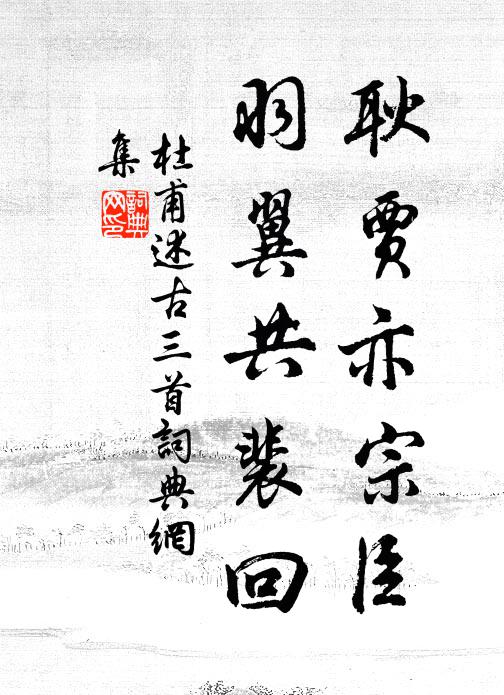 耿贾亦宗臣
羽翼共裴回
杜甫述古三首詞典網
集
詞典
网印